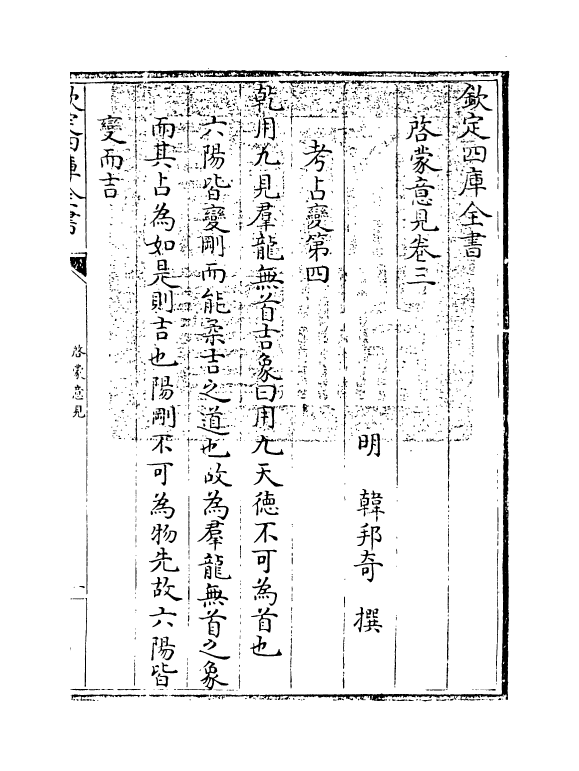 欽定四庫全書
啓蒙意見卷三
明　韓邦奇　撰
考占變第四
乾用九見羣龍無首吉象曰用九天德不可為首也
六陽皆變剛而能柔吉之道也故為羣龍無首之象
而其占為如是則吉也陽剛不可為物先故六陽皆
變而吉
欽定四庫全書
啓蒙意見
一